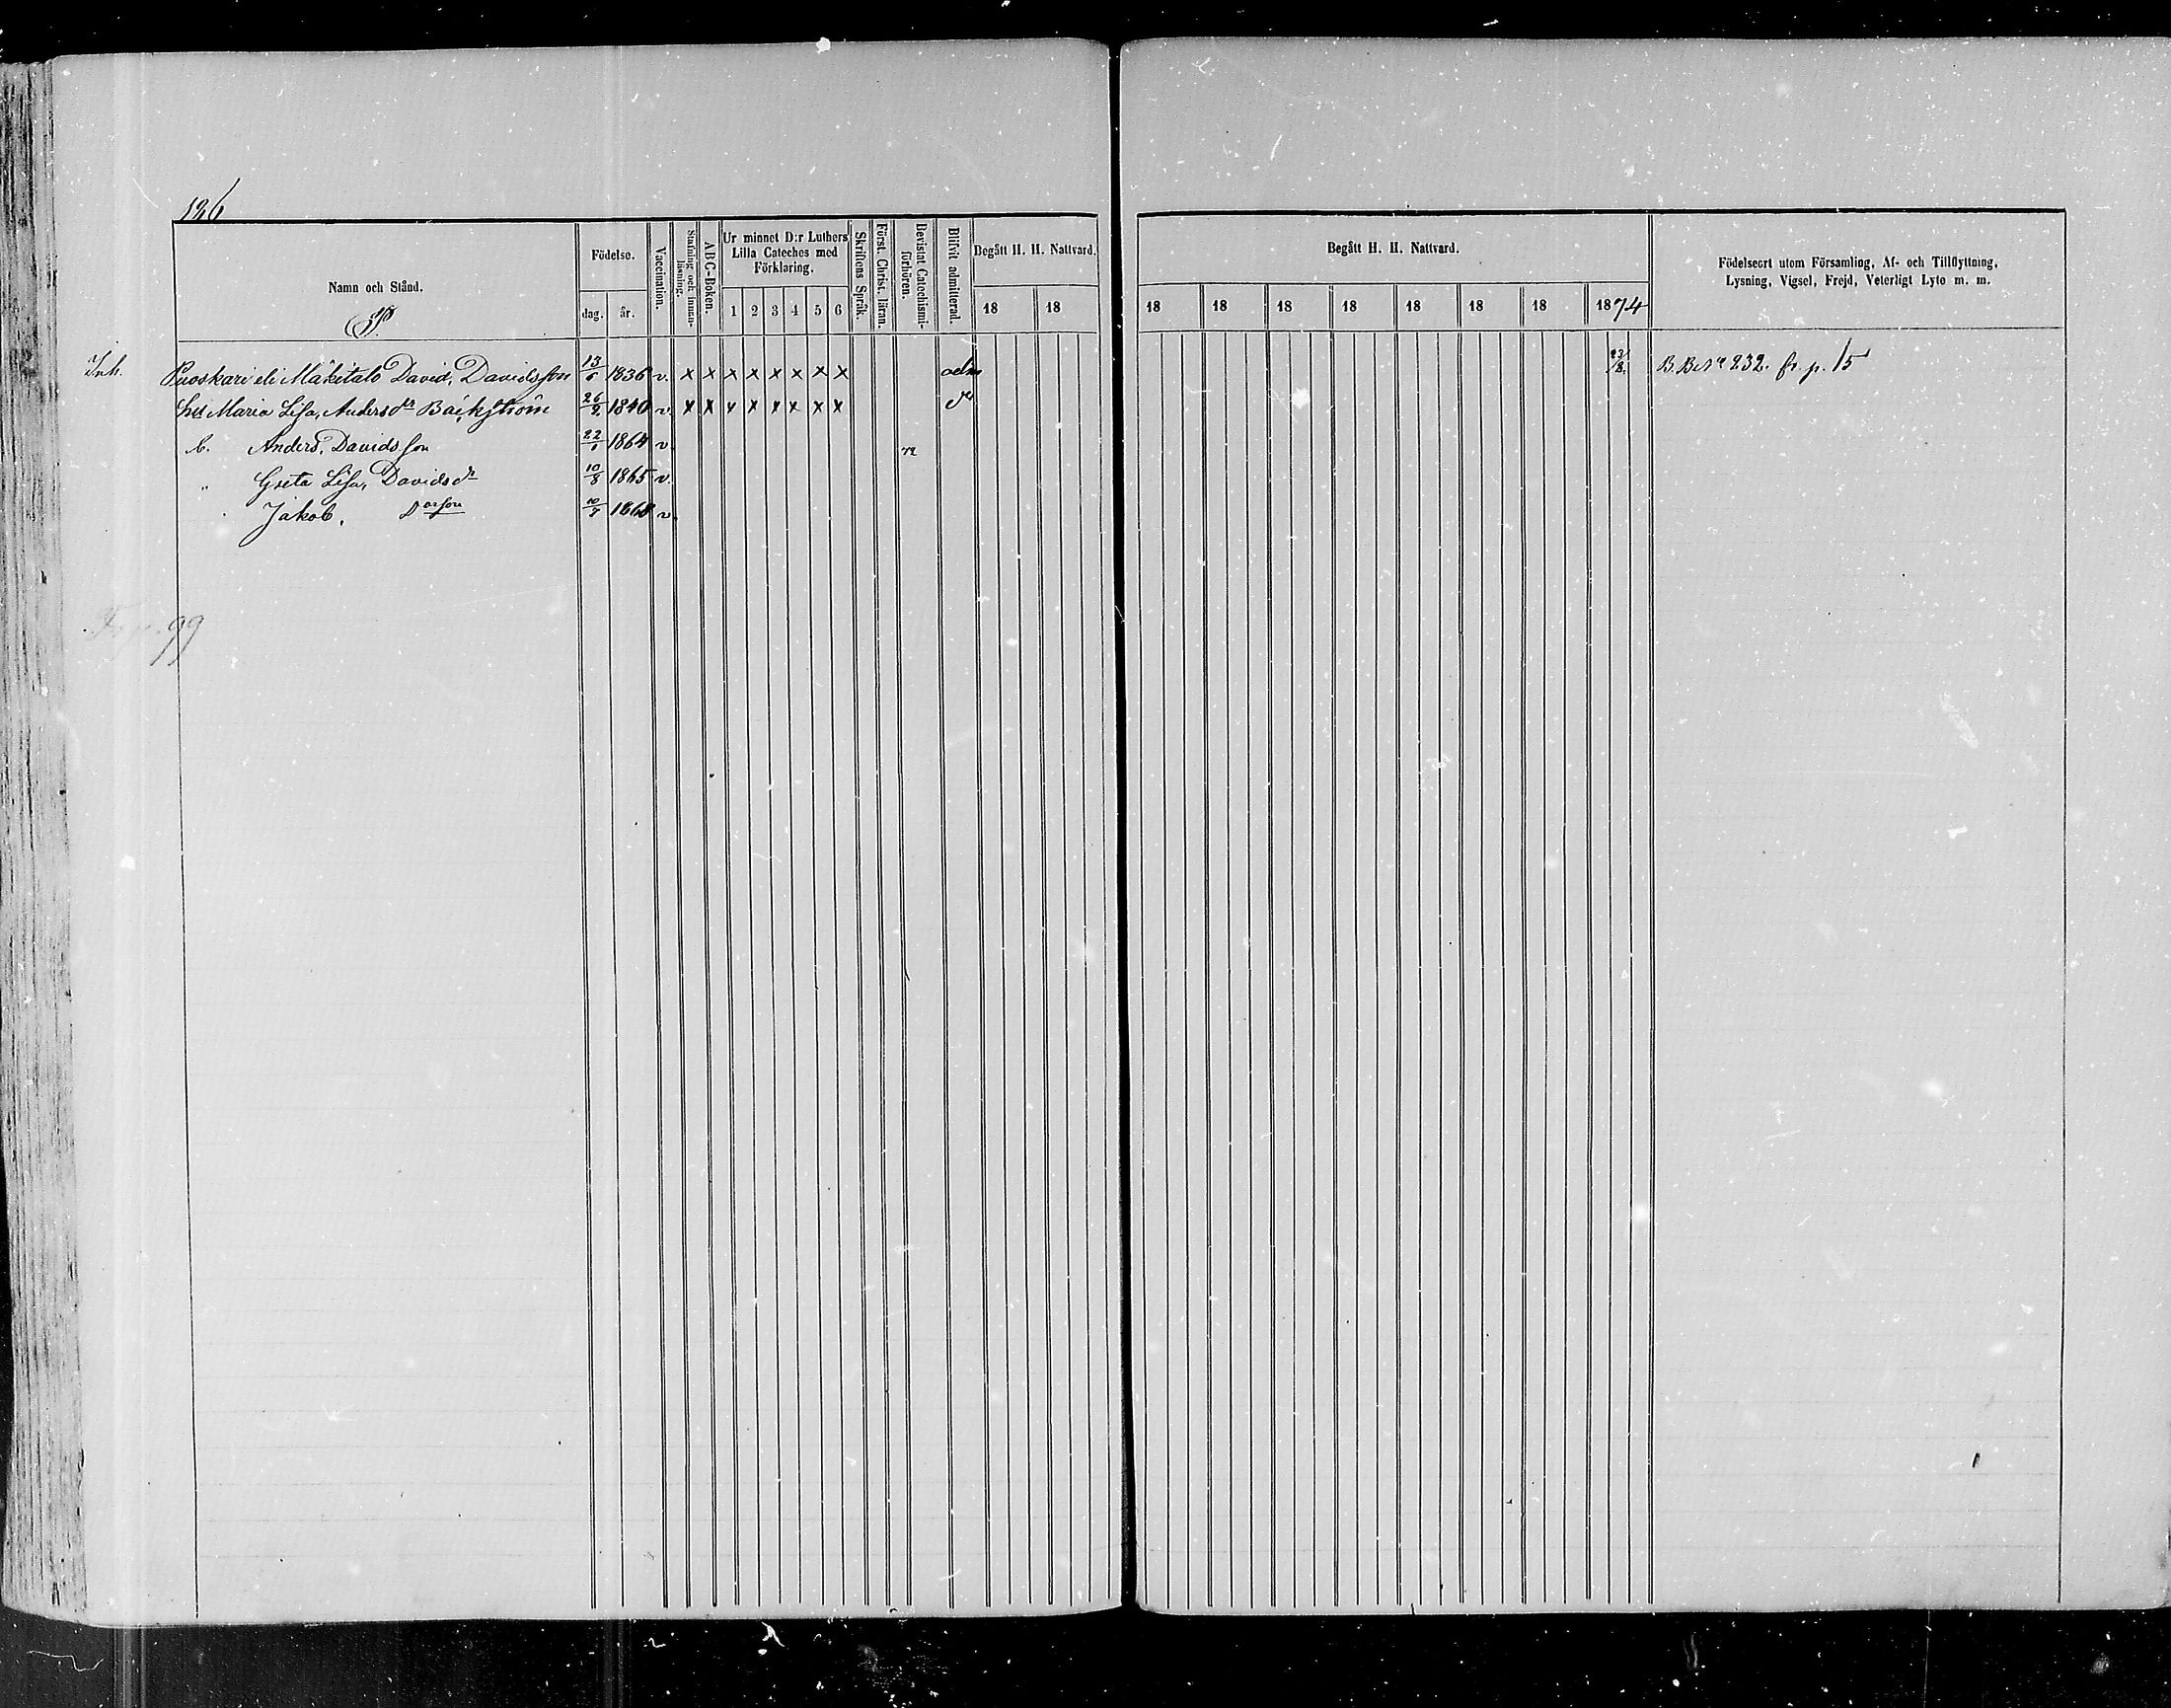 126
Namn och Stånd.
P.
Födelse.
dag. år.
Vaccination.
Stafning och innan-läsning.
ABC-Boken.
Ur minnet D:r Luthers Lilla Cateches med Förklaring.
1 2 3 4 5 6
Skriftens Språk.
Först. Christ. läran.
Bevistat Catechismi-förhören.
Blifvit admitterad.
Begått H. H. Nattvard.
18 18
Begått H. H. Nattvard.
18 18 18 18 18 18 18 1874
Födelseort utom Församling, Af- och Tillflyttning, Lysning, Vigsel, Frejd, Veterligt Lyte m. m.
Inh. Puoskari eli Mäkitalo David, Davidsson 13/6 1836 v. x x x x x x x x adm 23/8. B. Bet. 232. fr. p. 15
hu Maria Lisa, Andersdr Bäckström 26/2 1840 v. x x x x x x x x do
b. Anders, Davidsson 22/1 1864 v n
" Greta Lisa, Davidsdr 10/8 1865 v.
Jakob, Davson 10/7 1868 v.
Fr. p. 99